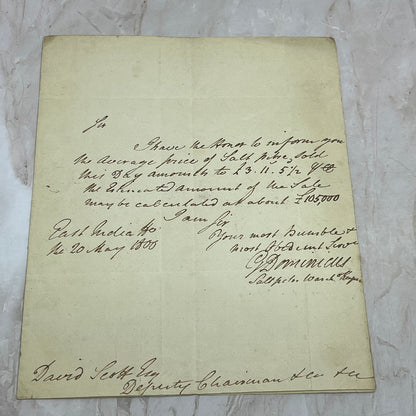 Sir
I have the Honor to inform you
the Average price of Salt Petre, sold
this Day amounts to £3.11.5½
the Estimated amount of the Sale
may be calculated at about £105,000
I am Sir
Your most Humble &
most Obedient
East India Ho
the 20 May 1800
G Dominicus
Saltpetre Wareh Keeper
David Scott Esq
Deputy Chairman &c &c